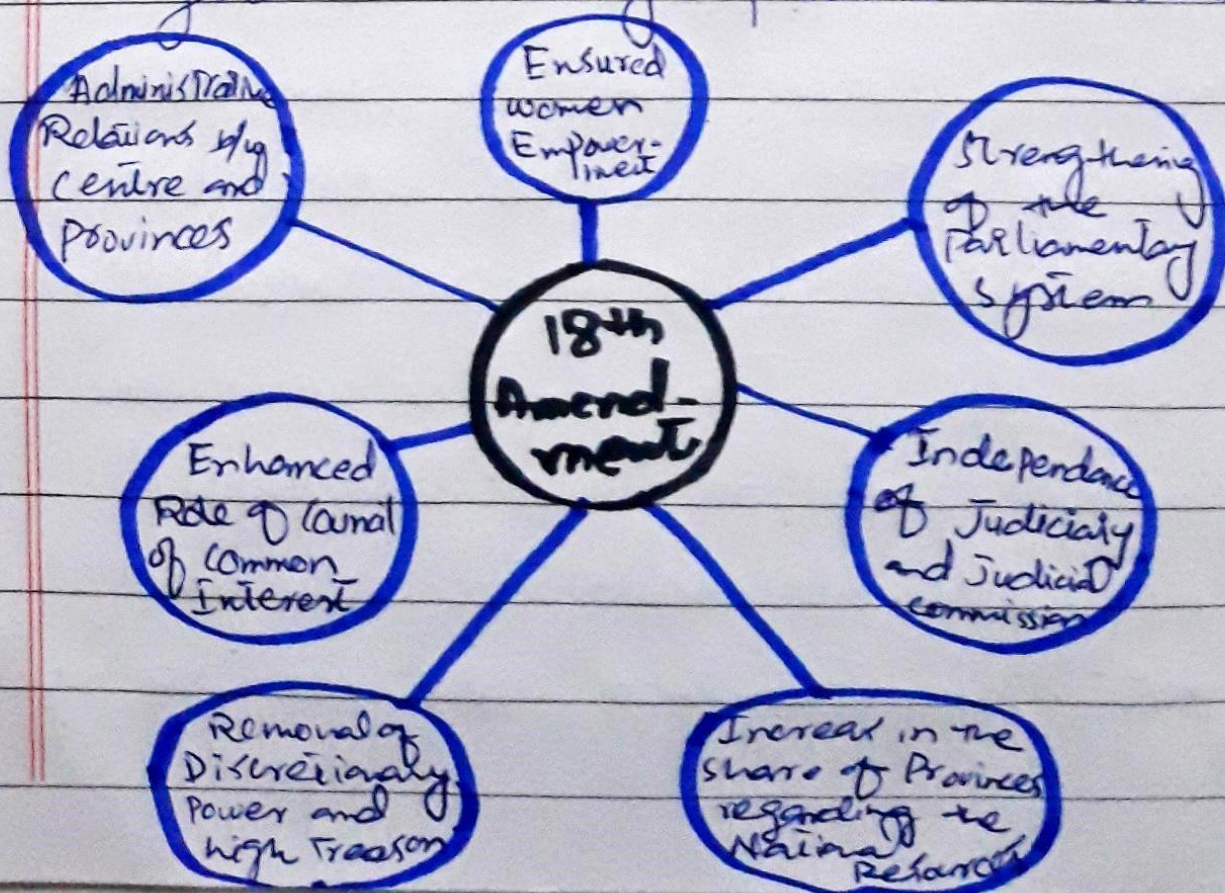 Administrative
Relations b/w
Centre and
Provinces
Ensured
women
Empower-
ment
Strengthening
of the
Parliamentary
System
18th
Amend-
ment
Enhanced
Role of Counal
of Common
Interest
Independance
of Judiciary
and Judicial
commission
Removal of
Discretionary
Power and
high Treason
Increase in the
share of Provinces
regarding the
National
Resources